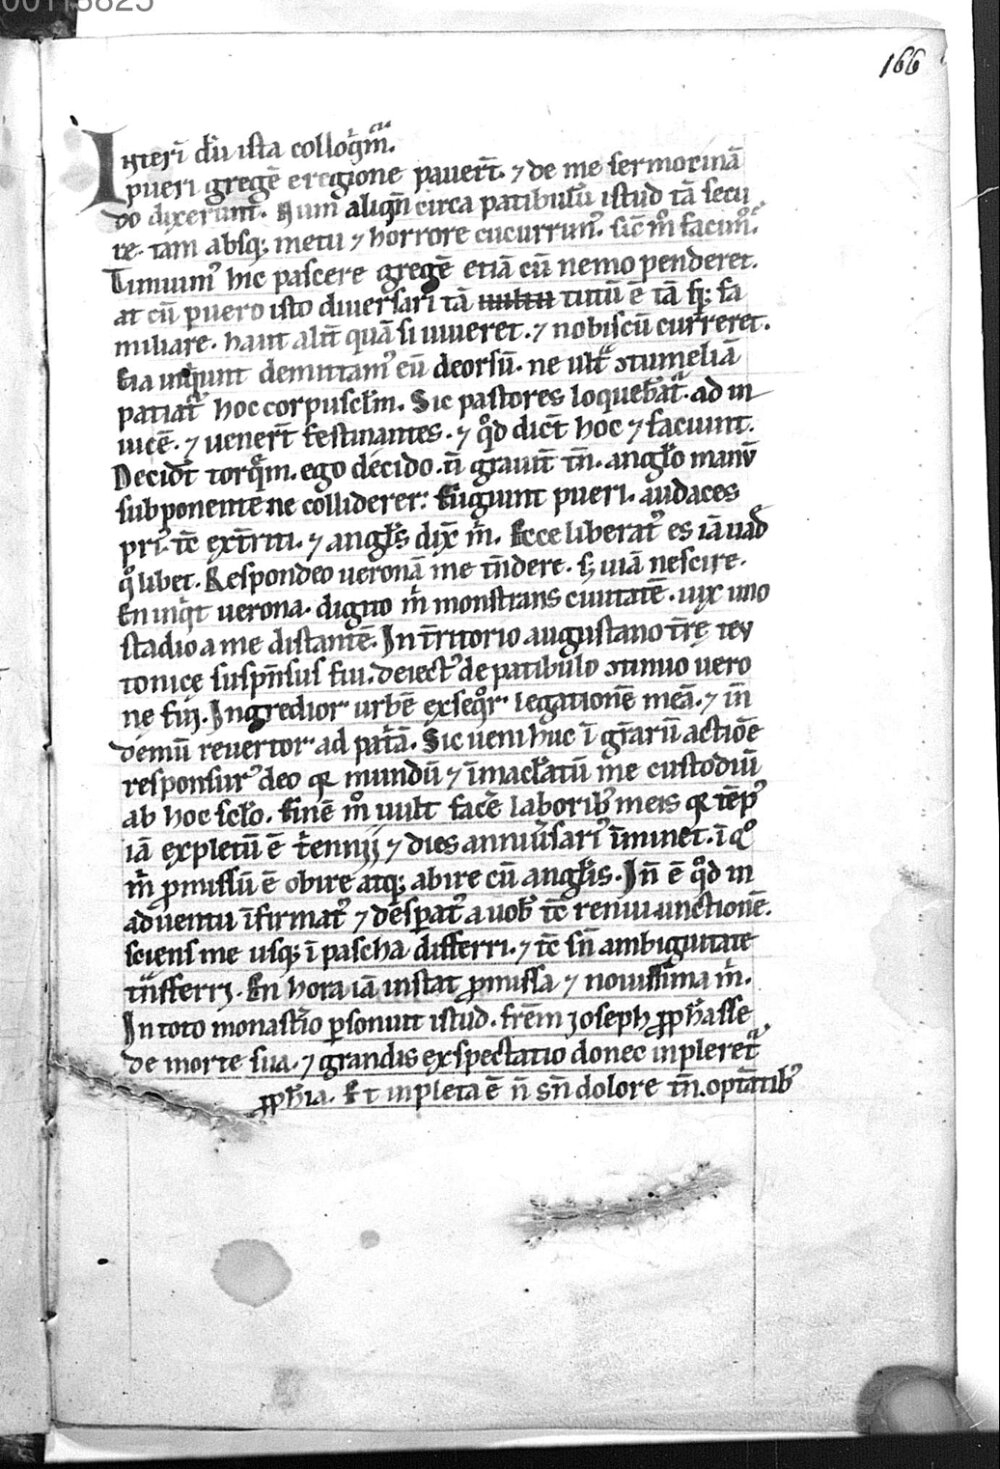 00113825
166
Interī dū ista colloq̄m̄ᶜᵘ.
pueri gregē eregione pauer̄t. ⁊ de me sermocinā
do dixerunt. Num aliqn̄ circa patibulū istud tā secu
re. tam absq; metu ⁊ horrore cucurrim᾽. sic̄ m̊ facim᾽.
Timuim᾽ hic pascere gregē etiā cū nemo penderet.
at cū puero isto diuersari tā tutū ē tā fa
miliare. haut alit̄ quā si uiueret. ⁊ nobiscū curreret.
Eia inquiunt demittam᾽ eū deorsū. ne ultᷓ ɔtumeliā
patiat᷑ hoc corpusclm̄. Sic pastores loquebāt᷑. ad in
uicē. ⁊ uener̄t festinantes. ⁊ qd̄ dict̄ hoc ⁊ faciunt.
Decidt̄ torq̄m. ego decido. n̄ grauit̄ tn̄. anglo manū
subponente ne colliderer. Fugiunt pueri. audaces
pri᾽. tc̄ ext̄riti. ⁊ angls̄ dix̄ m̄. Ecce liberat᾽ es iā uad̄
q̊libet. Respondeo ueronā me tn̄dere. s; uiā nescire.
En inqt verona. digito m̄ monstrans ciuitatē. uix uno
stadio a me distantē. In t̄rritorio augustano t̄rę tev
tonicę suspn̄sus fui. deiect᾽ de patibulo ɔtinuo uero
ne fui. Ingredior urbē exseq̊r legationē meā. ⁊ in̄
demū reuertor ad pat̄ā. Sic ueni huc ī gr̄arū actiōe
responsur᾽ deo qͥ mundū ⁊ īmaclatū me custodiuī
ab hoc sclo. Finē m̊ uult facē laborib᾽ meis qͥ tēp᾽
iā expletū ē t̄ennij ⁊ dies anniu̅sari᾽ īminet. ī q̊
m̄ p̱missū ē obire atq; abire cū anglis. In̄ ē qd̄ in
aduentu īfirmat᾽ ⁊ despat᾽ a uob̄ tc̄ renui unctionē.
sciens me usq; ī pascha differri. ⁊ tc̄ sn̄ ambiguitate
tn̄sferri. En hora iā instat p̱missa ⁊ nouissima m̄.
In toto monast̄io psonuit istud. frēm ioseph pph̄asse
de morte sua. ⁊ grandis exspectatio donec inpleret᷑
pph̄ia. Et inpleta ē n̄ sn̄ dolore tn̄. optātib᾽